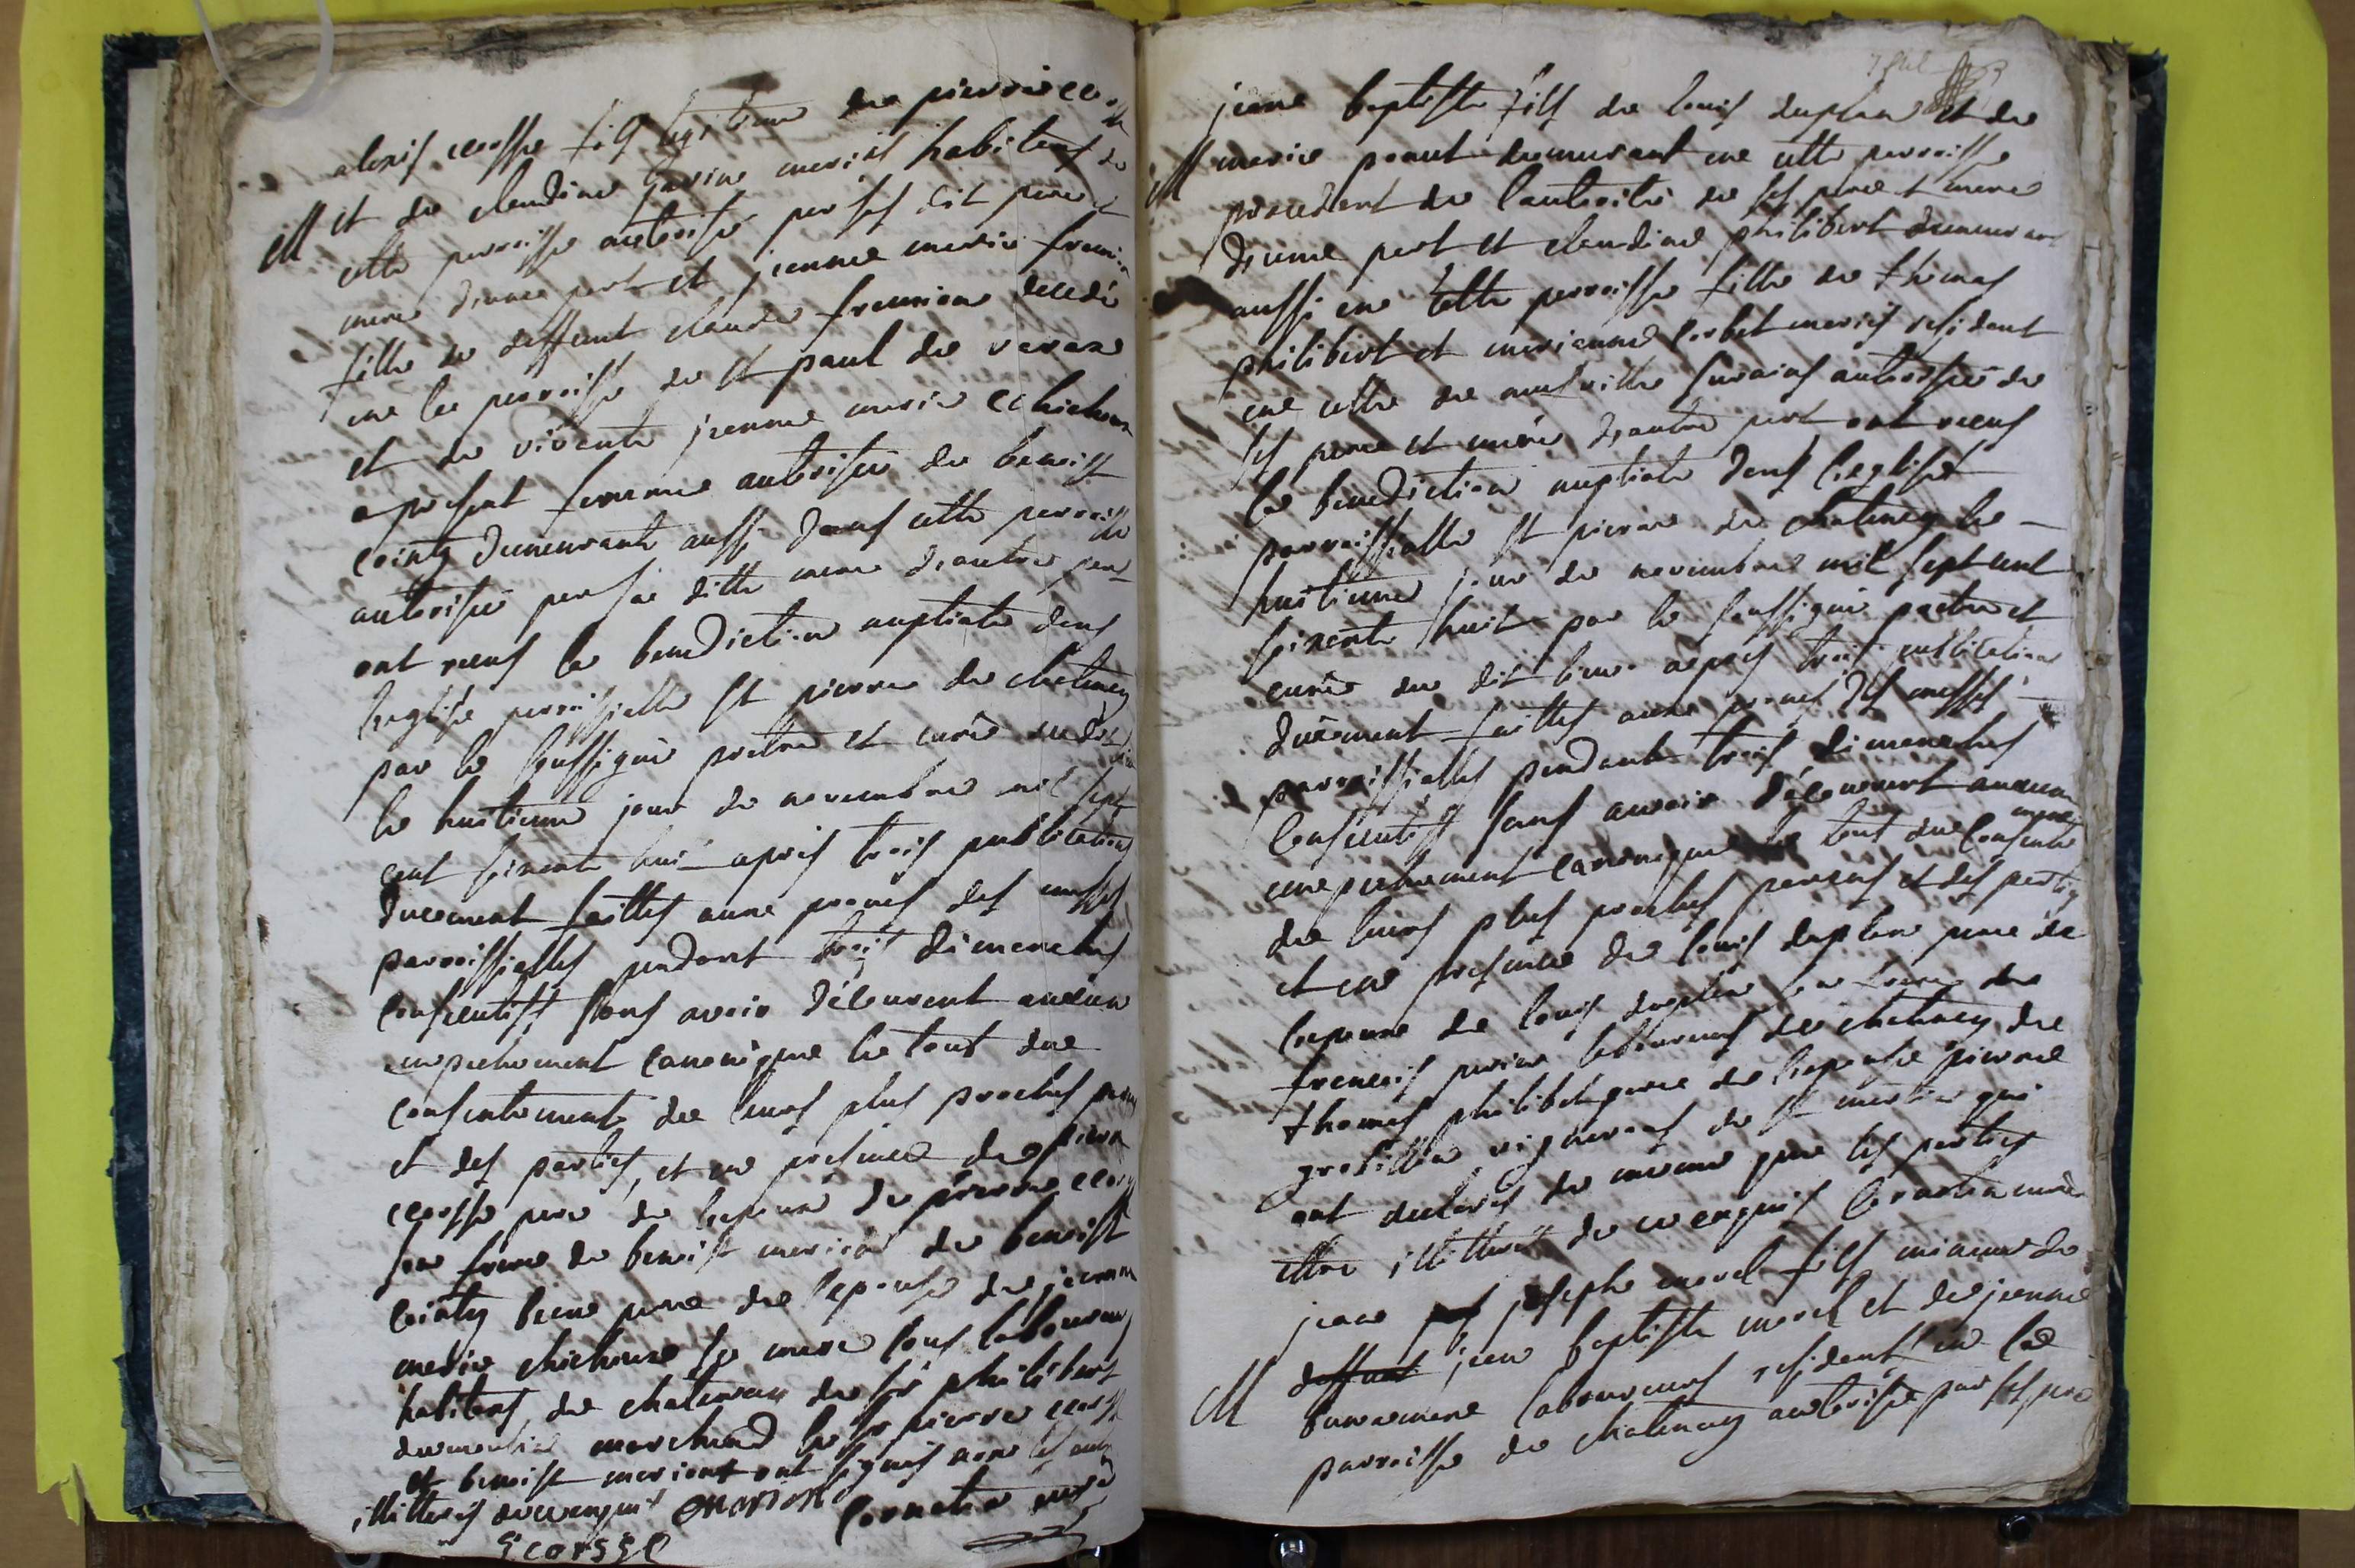 alexis ecosse fils legitime de pierre ecosse
M et de claudine maries habitans de
cette parroisse authorisé par ses dit pere et
mere d'une part et jeanne marie
fille de deffunt claude decedé
en la parroisse de st paul de varax
et de vivente jeanne marie chichoux
a present femme authorisée de benoist
cointy demeurante aussi dans cette parroisse
authorisée par sa ditte mere d'autre part
ont recus la benediction nuptiale dans
l'eglise parroissialle st pierre de chatenay
par le soussigné pretre et curé dudit
le huitieme jour de novembre mil sept
cent soixante huit apres trois publications
duement faittes aux prones des messes
parroissialles pendant trois dimanches
consecutifs sans avoir découvert aucun
empechement canonique le tout du
consentement de leurs plus proches
et des parties, et en presence de pierre
ecosse pere de l'epoux de pierre
son frere de benoist marion de benoist
cointy beau pere de l'epouse de jeanne
marie chichoux sa mere tous laboureurs
habitans de chatenay de sr philibert
marchand le sr pierre
et benoist marion ont signés non les autres
illitterés de ce enquis marion cornaton curé
ecosse
jean baptiste fils de louis duplan et de
M marie demeurant en cette parroisse
procedant de l'authorité de ses pere et mere
d'une part et claudine philibert demeurant
aussi en cette parroisse fille de thomas
philibert et marianne corbet mariés residant
en celle de neufville authorisée de
ses pere et mere d'autre part ont recus
la benediction nuptiale dans l'eglise
parroissialle st pierre de chatenay le
huitieme jour de novembre mil sept cent
soixante huit par le soussigné pretre et
curé du dit lieu apres trois publications
duëment faittes aux prones des messes
parroissialles pendant trois dimanches
consecutifs sans avoir découvert aucun
empechement canonique le tout du consentement
de leurs plus proches parens et des parties
et en presence de louis duplan pere de
l'epoux de louis duplan son frere de
francois laboureurs de chatenay de
thomas philibert pere de l'epouse pierre
vigneron de st martin qui
ont declarés de meme que les parties
etre illitterés de ce enquis cornaton curé
jean joseph morel fils mineur de
deffunt jean baptiste morel et de jeanne
M laboureurs residents en la
parroisse de chatenay authorisé par ses pere